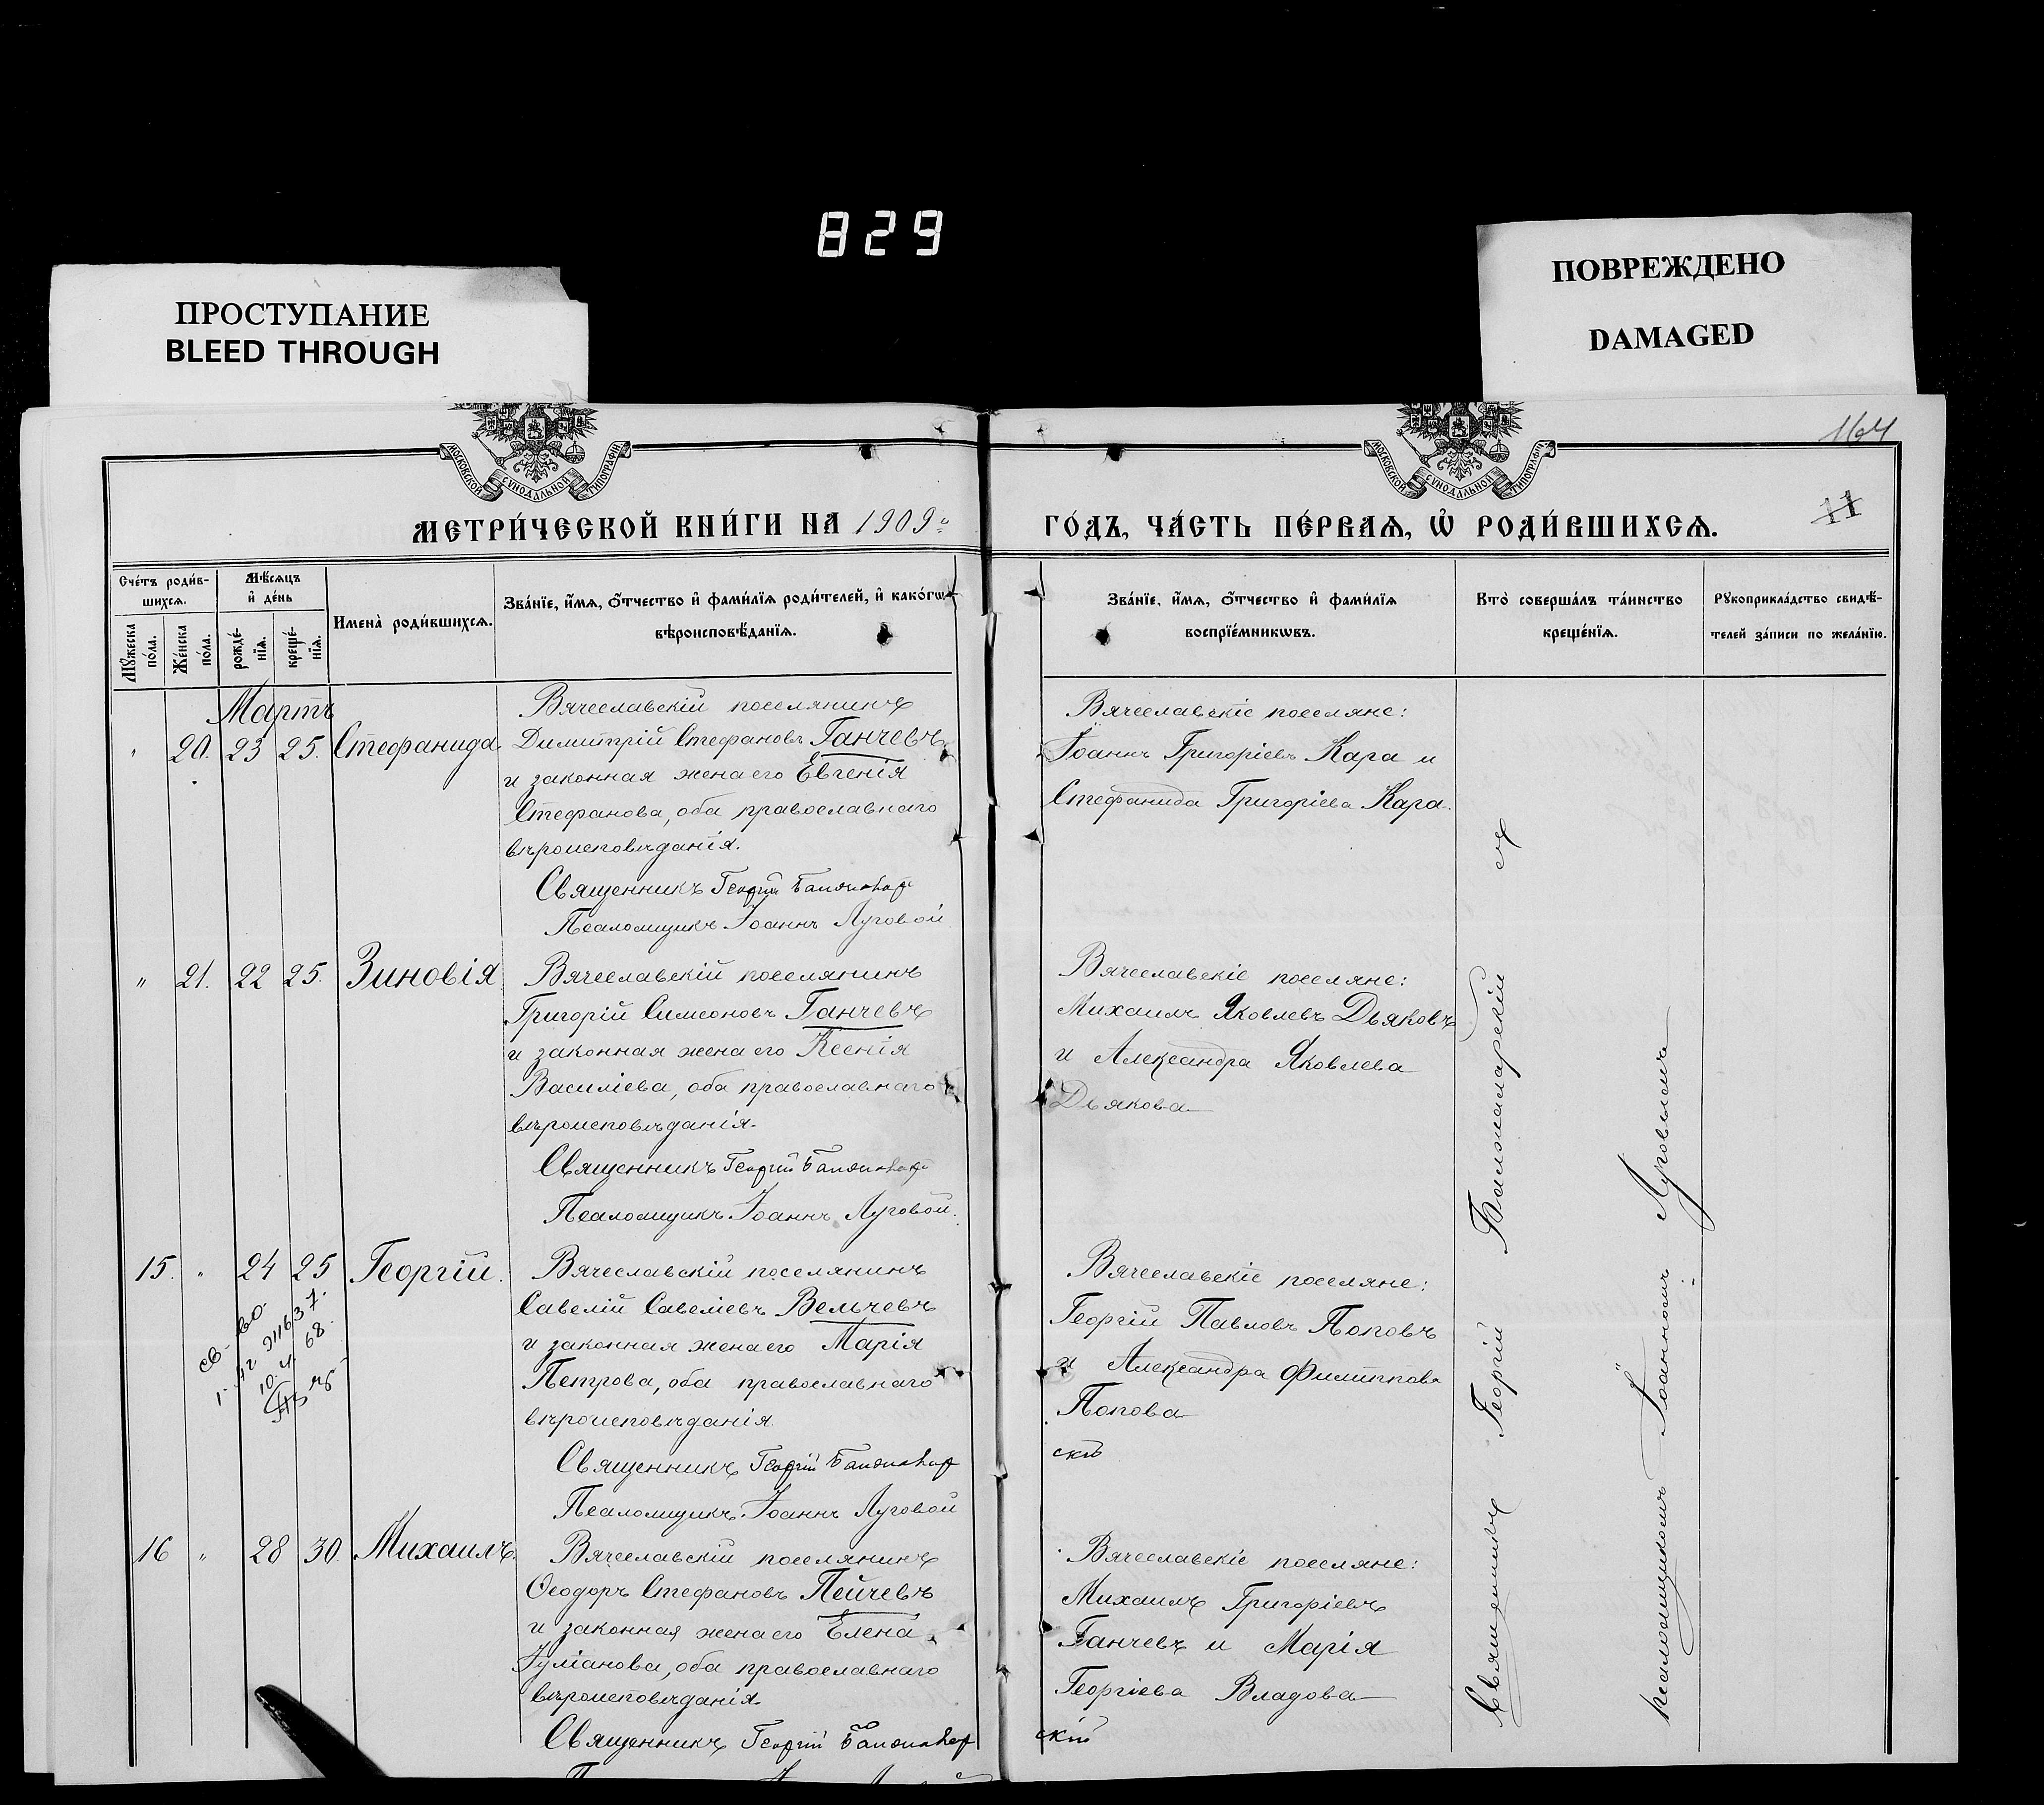 829
ПРОСТУПАНИЕ
BLEED THROUGH
ПОВРЕЖДЕНО
DAMAGED
МОСКОВСКОЙ СУНОДАЛЬНОЙ ТИПОГРАФІИ
МОСКОВСКОЙ СУНОДАЛЬНОЙ ТИПОГРАФІИ
164
11
МЕТРИ́ЧЕСКОЙ КНИ́ГИ НА 1909.
ГО́ДЪ, ЧА́СТЬ ПЕ́РВАѦ, Ѡ҆ РОДИ́ВШИХСѦ.
Сче́тъ роди́в-
шихсѧ.
Мѣ́сѧцъ
и҆ де́нь
Мꙋ́жеска
по́ла.
Же́нска
по́ла.
рожде́-
нїѧ.
креще́-
нїѧ.
Имена̀ роди́вшихсѧ.
Зва́нїе, и҆́мѧ, ѻ҆́тчество и҆ фами́лїѧ роди́телей, и҆ како́гѡ
вѣроисповѣ́данїѧ.
Зва́нїе, и҆́мѧ, ѻ҆́тчество и҆ фами́лїѧ
воспрїе́мникѡвъ.
Кто̀ соверша́лъ та́инство
креще́нїѧ.
Рꙋкоприкла́дство свидѣ́-
телей за́писи по жела́нїю.
Мартъ
" 20. 23 25. Стефанида.
Вячеславскій поселянинъ
Димитрій Стефановъ Ганчевъ
и законная жена его Евгенія
Стефанова, оба православнаго
вѣроисповѣданія.
Священникъ Георгій
Псаломщикъ Іоаннъ Луговой
Вячеславскіе поселяне:
Іоаннъ Григоріевъ Кара и
Стефанида Григоріева Кара.
" 21. 22 25. Зиновія
Вячеславскій поселянинъ
Григорій Симеоновъ Ганчевъ
и законная жена его Ксенія
Василіева, оба православнаго
вѣроисповѣданія.
Священникъ Георгій
Псаломщикъ Іоаннъ Луговой.
Вячеславскіе поселяне:
Михаилъ Яковлевъ Дьяковъ
и Александра Яковлева
Дьякова
15. " 24 25 Георгій.
св-во
911637.
10. 4. 68.
Вячеславскій поселянинъ
Савелій Савеліевъ Вельчевъ
и законная жена его Марія
Петрова, оба православнаго
вѣроисповѣданія
Священникъ Георгій
Псаломщикъ Іоаннъ Луговой
Вячеславскіе поселяне:
Георгій Павловъ Поповъ
и Александра Филиппова
Попова
скій
16 " 28 30. Михаилъ.
Вячеславскій поселянинъ
Ѳеодоръ Стефановъ Пейчевъ
и законная жена его Елена
Іуліанова, оба православнаго
вѣроисповѣданія
Священникъ Георгій
Вячеславскіе поселяне:
Михаилъ Григоріевъ
Ганчевъ и Марія
Георгіева Владова
скій
Священникъ Георгій съ
псаломщикомъ Іоанномъ Луговымъ